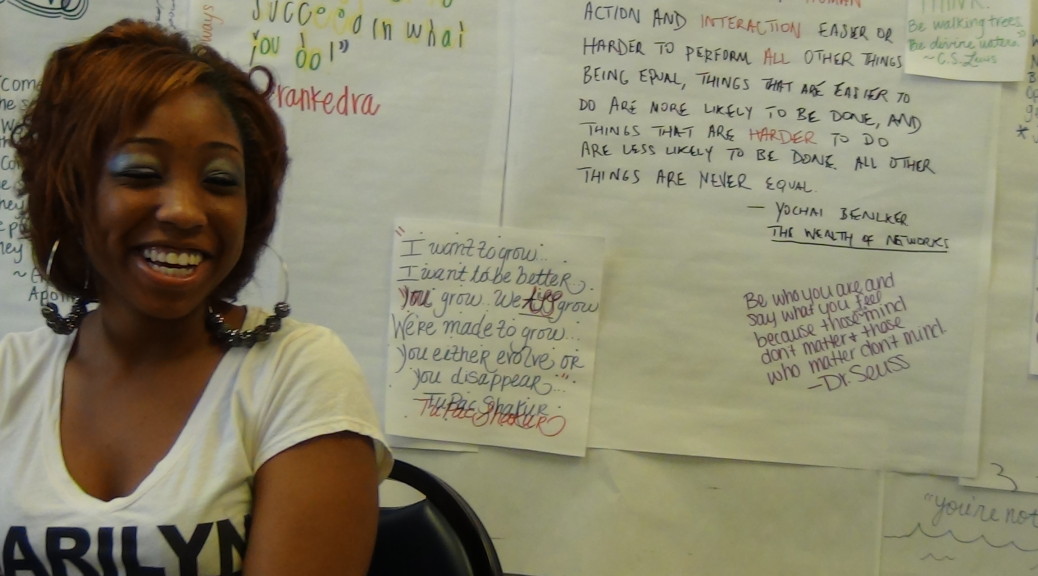 succeed in what
you do!"
Prankedra
always
HUMAN
ACTION AND INTERACTION EASIER OR
HARDER TO PERFORM ALL OTHER THINGS
BEING EQUAL, THINGS THAT ARE EASIER TO
DO ARE MORE LIKELY TO BE DONE, AND
THINGS THAT ARE HARDER TO DO
ARE LESS LIKELY TO BE DONE. ALL OTHER
THINGS ARE NEVER EQUAL.
— YOCHAI BENLKER
THE WEALTH OF NETWORKS
THINK.
Be walking trees.
Be divine waters"
~C.S. Lewis
"I want to grow...
I want to be better.
You grow. We all grow
We're made to grow...
you either evolve or
you disappear..."
Tupac Shakur
Tupac Shakur
Be who you are and
say what you feel
because those mind
don't matter & those
who matter don't mind.
—Dr. Seuss
3
"you're not
ARILYN